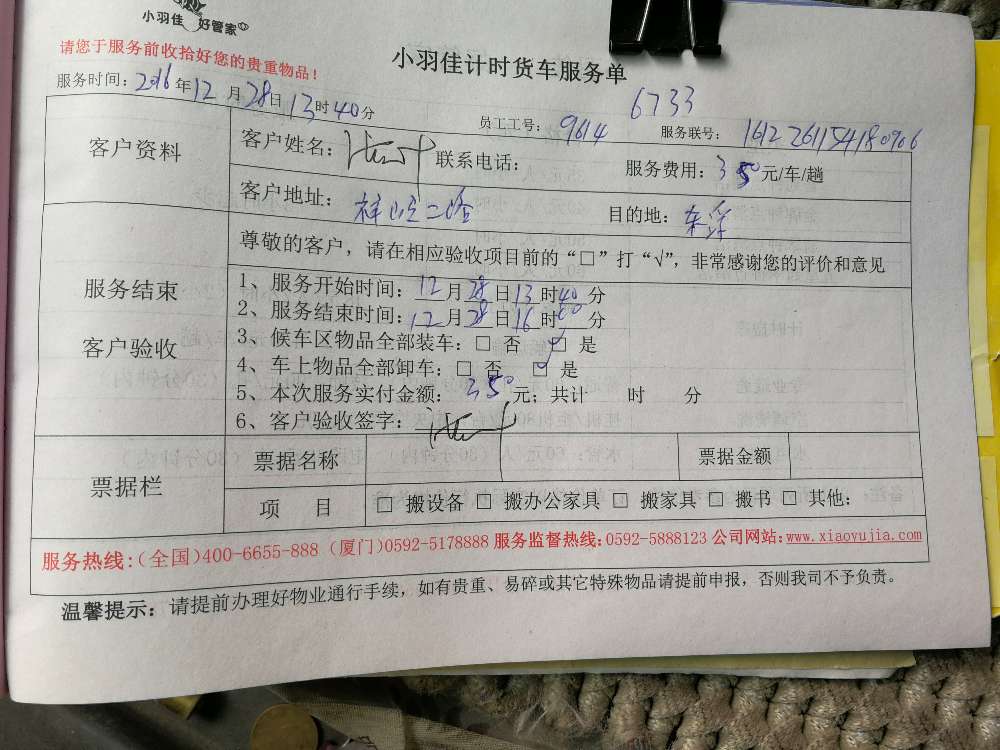 小羽佳 好管家
请您于服务前收拾好您的贵重物品!
小羽佳计时货车服务单
6733
服务时间: 2016年12月28日13时40分
员工工号: 9614 服务联号: 1612261154180906
客户资料
客户姓名: 联系电话: 服务费用: 350元/车/趟
客户地址: 目的地: 东孚
服务结束
客户验收
尊敬的客户，请在相应验收项目前的“□”打“√”，非常感谢您的评价和意见
1、服务开始时间: 12月28日13时40分
2、服务结束时间: 12月28日16时00分
3、候车区物品全部装车: □ 否 ☑ 是
4、车上物品全部卸车: □ 否 ☑ 是
5、本次服务实付金额: 350元; 共计 时 分
6、客户验收签字:
票据栏
票据名称 票据金额
项 目 □ 搬设备 □ 搬办公家具 □ 搬家具 □ 搬书 □ 其他:
服务热线:(全国)400-6655-888 (厦门)0592-5178888 服务监督热线:0592-5888123 公司网站:www.xiaoyujia.com
温馨提示: 请提前办理好物业通行手续，如有贵重、易碎或其它特殊物品请提前申报，否则我司不予负责。